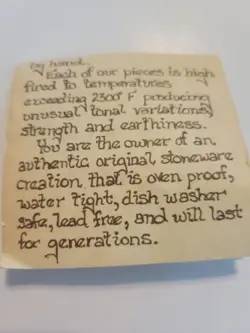 by hand.
Each of our pieces is high
fired to temperatures
exceeding 2300° F producing
unusual tonal variations,
strength and earthiness.
You are the owner of an
authentic original stoneware
creation that is oven proof,
water tight, dish washer
safe, lead free, and will last
for generations.